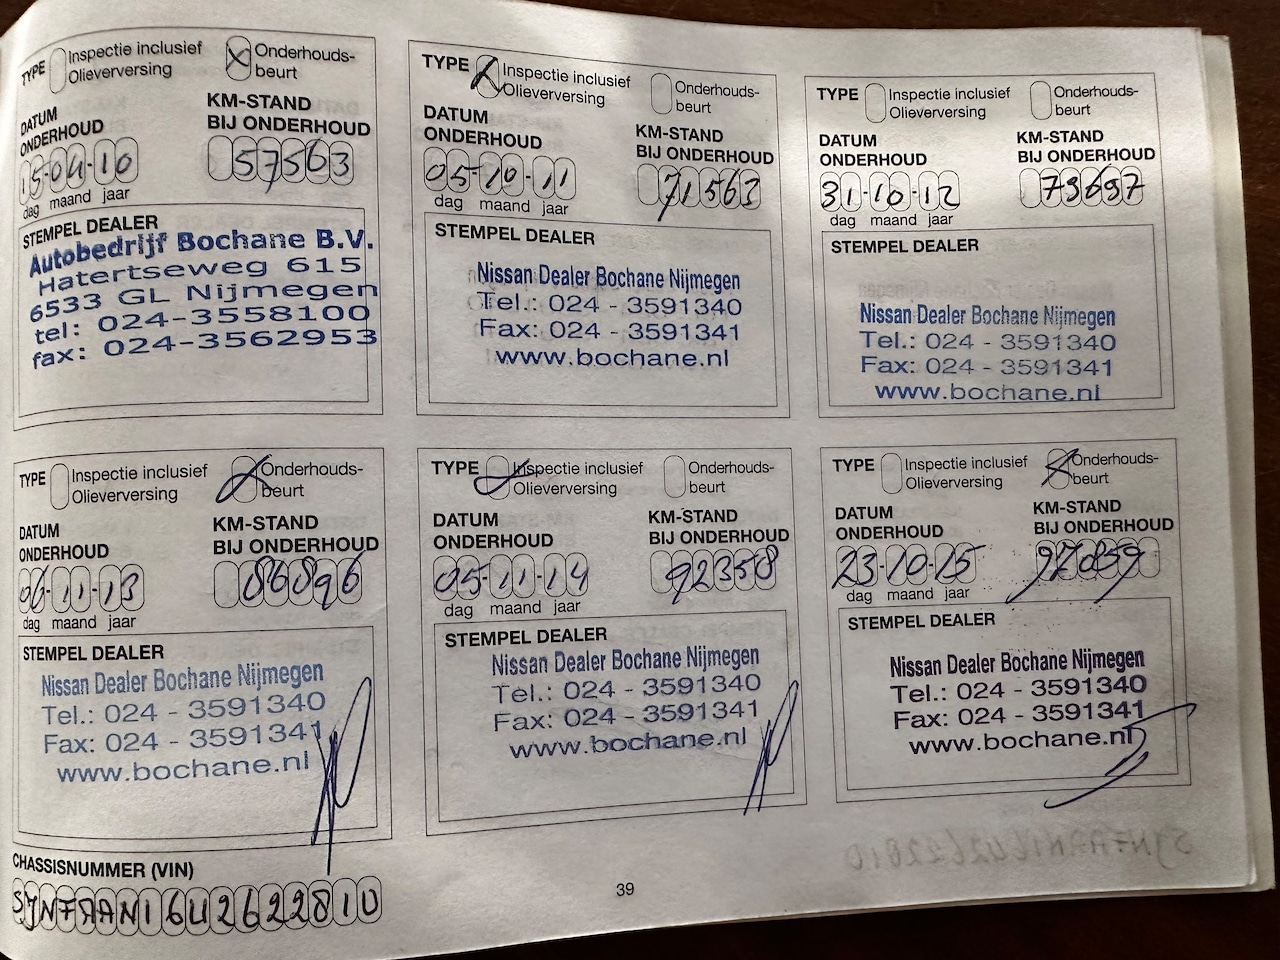 TYPE Inspectie inclusief Olieverversing Onderhouds-beurt
DATUM ONDERHOUD
KM-STAND BIJ ONDERHOUD
15-04-10
57563
dag maand jaar
STEMPEL DEALER
Autobedrijf Bochane B.V.
Hatertseweg 615
6533 GL Nijmegen
tel: 024-3558100
fax: 024-3562953
TYPE Inspectie inclusief Olieverversing Onderhouds-beurt
DATUM ONDERHOUD
KM-STAND BIJ ONDERHOUD
05-10-11
71563
dag maand jaar
STEMPEL DEALER
Nissan Dealer Bochane Nijmegen
Tel.: 024 - 3591340
Fax: 024 - 3591341
www.bochane.nl
TYPE Inspectie inclusief Olieverversing Onderhouds-beurt
DATUM ONDERHOUD
KM-STAND BIJ ONDERHOUD
31-10-12
dag maand jaar
STEMPEL DEALER
Nissan Dealer Bochane Nijmegen
Tel.: 024 - 3591340
Fax: 024 - 3591341
www.bochane.nl
TYPE Inspectie inclusief Olieverversing Onderhouds-beurt
DATUM ONDERHOUD
KM-STAND BIJ ONDERHOUD
06-11-13
86896
dag maand jaar
STEMPEL DEALER
Nissan Dealer Bochane Nijmegen
Tel.: 024 - 3591340
Fax: 024 - 3591341
www.bochane.nl
TYPE Inspectie inclusief Olieverversing Onderhouds-beurt
DATUM ONDERHOUD
KM-STAND BIJ ONDERHOUD
05-11-14
92358
dag maand jaar
STEMPEL DEALER
Nissan Dealer Bochane Nijmegen
Tel.: 024 - 3591340
Fax: 024 - 3591341
www.bochane.nl
TYPE Inspectie inclusief Olieverversing Onderhouds-beurt
DATUM ONDERHOUD
KM-STAND BIJ ONDERHOUD
23-10-15
97859
dag maand jaar
STEMPEL DEALER
Nissan Dealer Bochane Nijmegen
Tel.: 024 - 3591340
Fax: 024 - 3591341
www.bochane.nl
CHASSISNUMMER (VIN)
SJNFAAN16U2622810
39